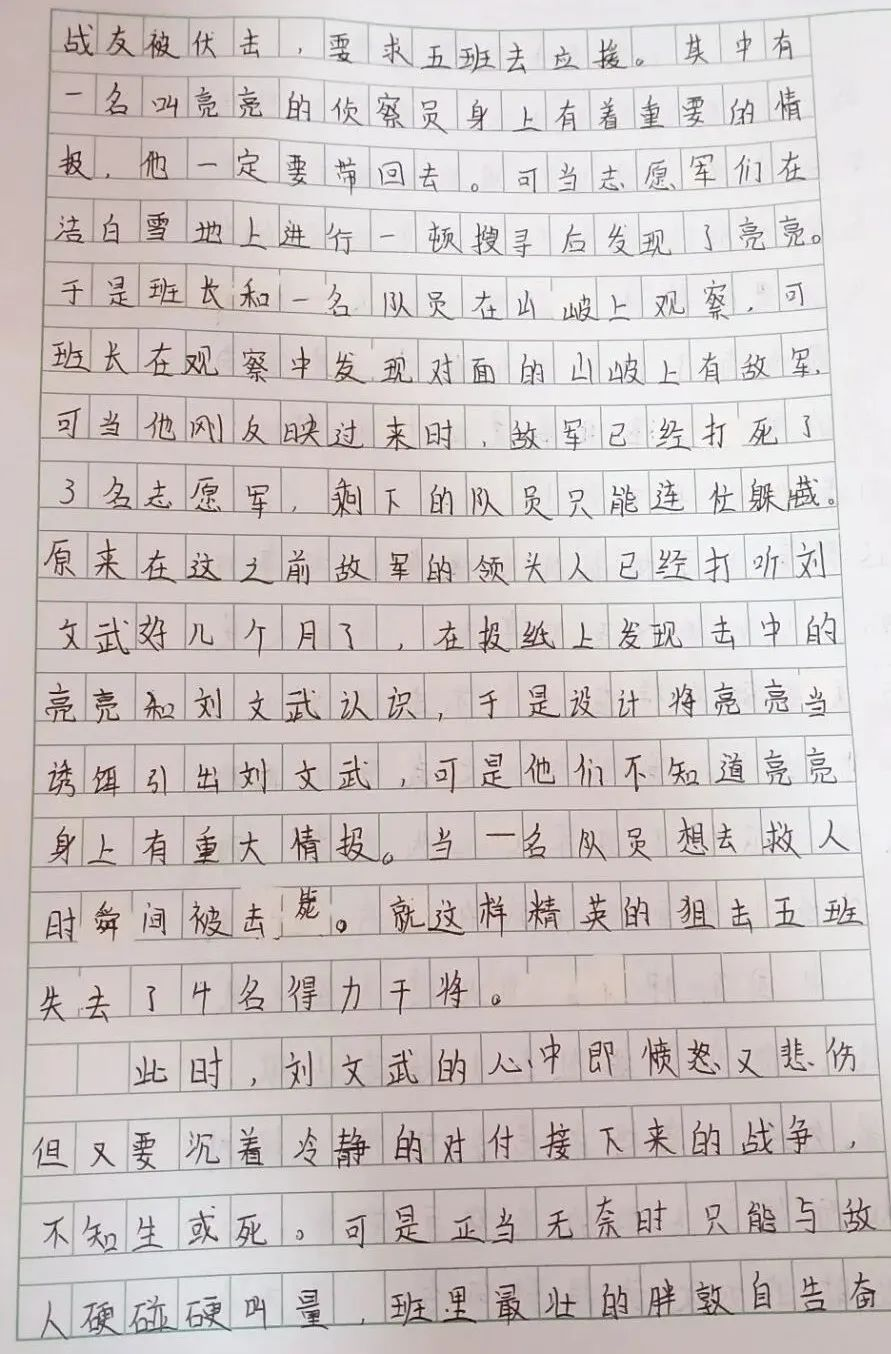 战友被伏击，要求五班去应援。其中有
一名叫亮亮的侦察员身上有着重要的情
报，他一定要带回去。可当志愿军们在
洁白雪地上进行一顿搜寻后发现了亮亮。
于是班长和一名队员在山岥上观察，可
班长在观察中发现对面的山岥上有敌军，
可当他刚反映过来时，敌军已经打死了
3名志愿军，剩下的队员只能连忙躲藏。
原来在这之前敌军的领头人已经打听刘
文武好几个月了，在报纸上发现击中的
亮亮和刘文武认识，于是设计将亮亮当
诱饵引出刘文武，可是他们不知道亮亮
身上有重大情报。当一名队员想去救人
时舜间被击毙。就这样精英的狙击五班
失去了4名得力干将。
此时，刘文武的心中即愤怒又悲伤
但又要沉着冷静的对付接下来的战争，
不知生或死。可是正当无奈时只能与敌
人硬碰硬叫量，班里最壮的胖敦自告奋